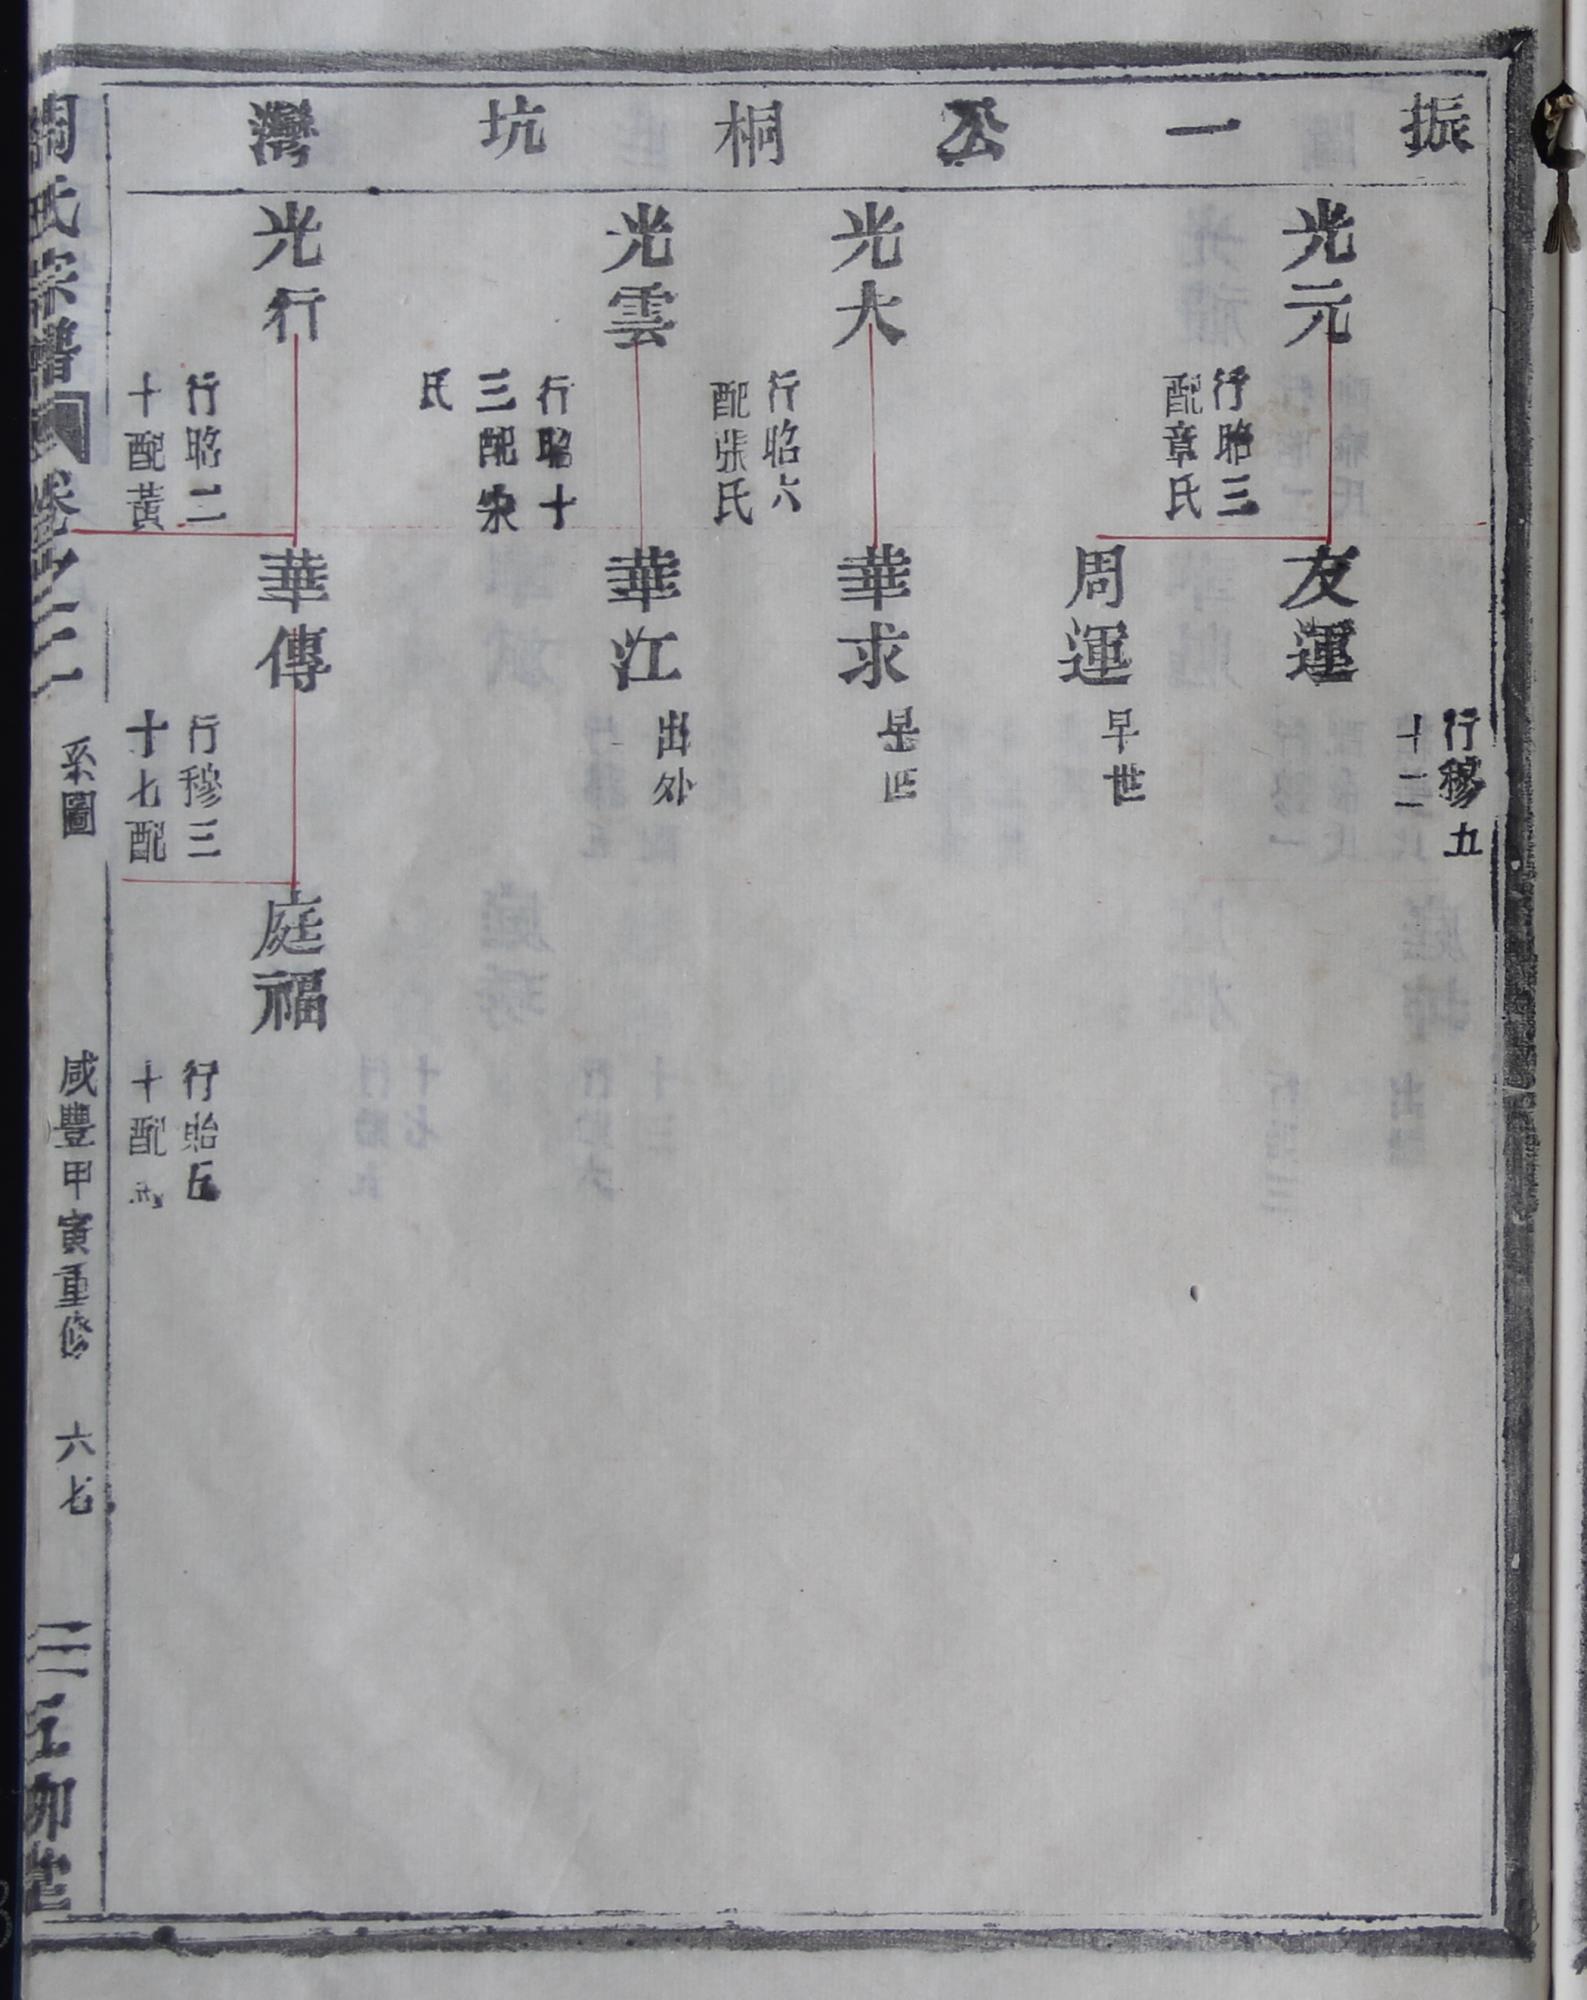 振一公桐坑灣
光元
行昭三
配章氏
光大
行昭六
配張氏
光雲
行昭十
三配宋
氏
光行
行昭二
十配黃
行穆五
十二
友運
周運
早世
華求
早世
華江
出外
華傳
行穆三
十七配
庭福
行貽五
十配
周氏宗譜
卷之二一
系圖
咸豐甲寅重修
六七
三互柳堂